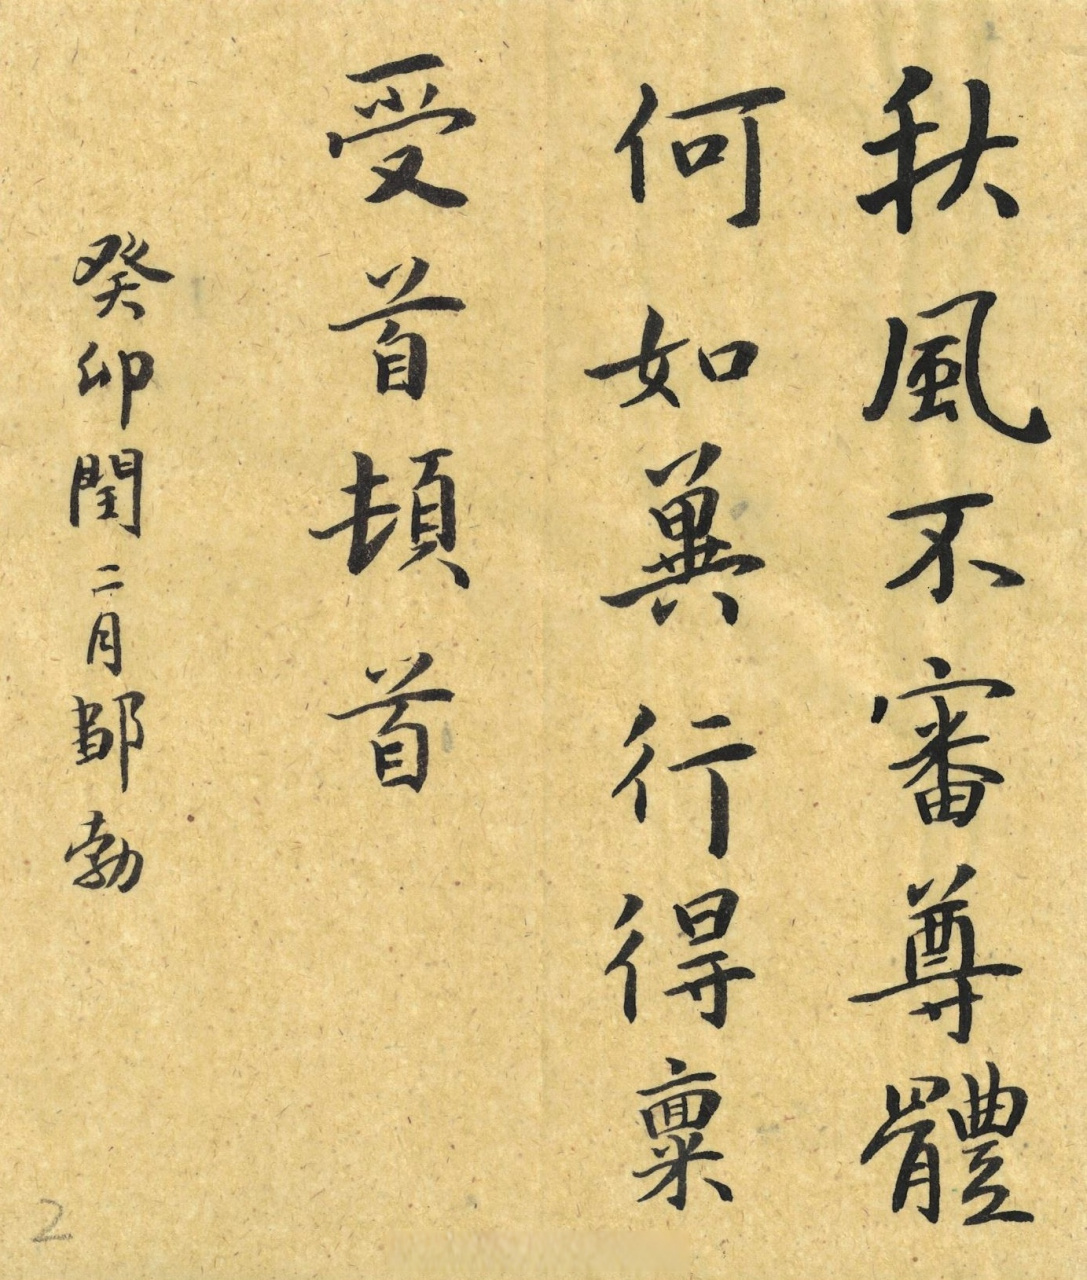 秋風不審尊體
何如冀行得稟
受首頓首
癸卯閏二月鄐勃
2